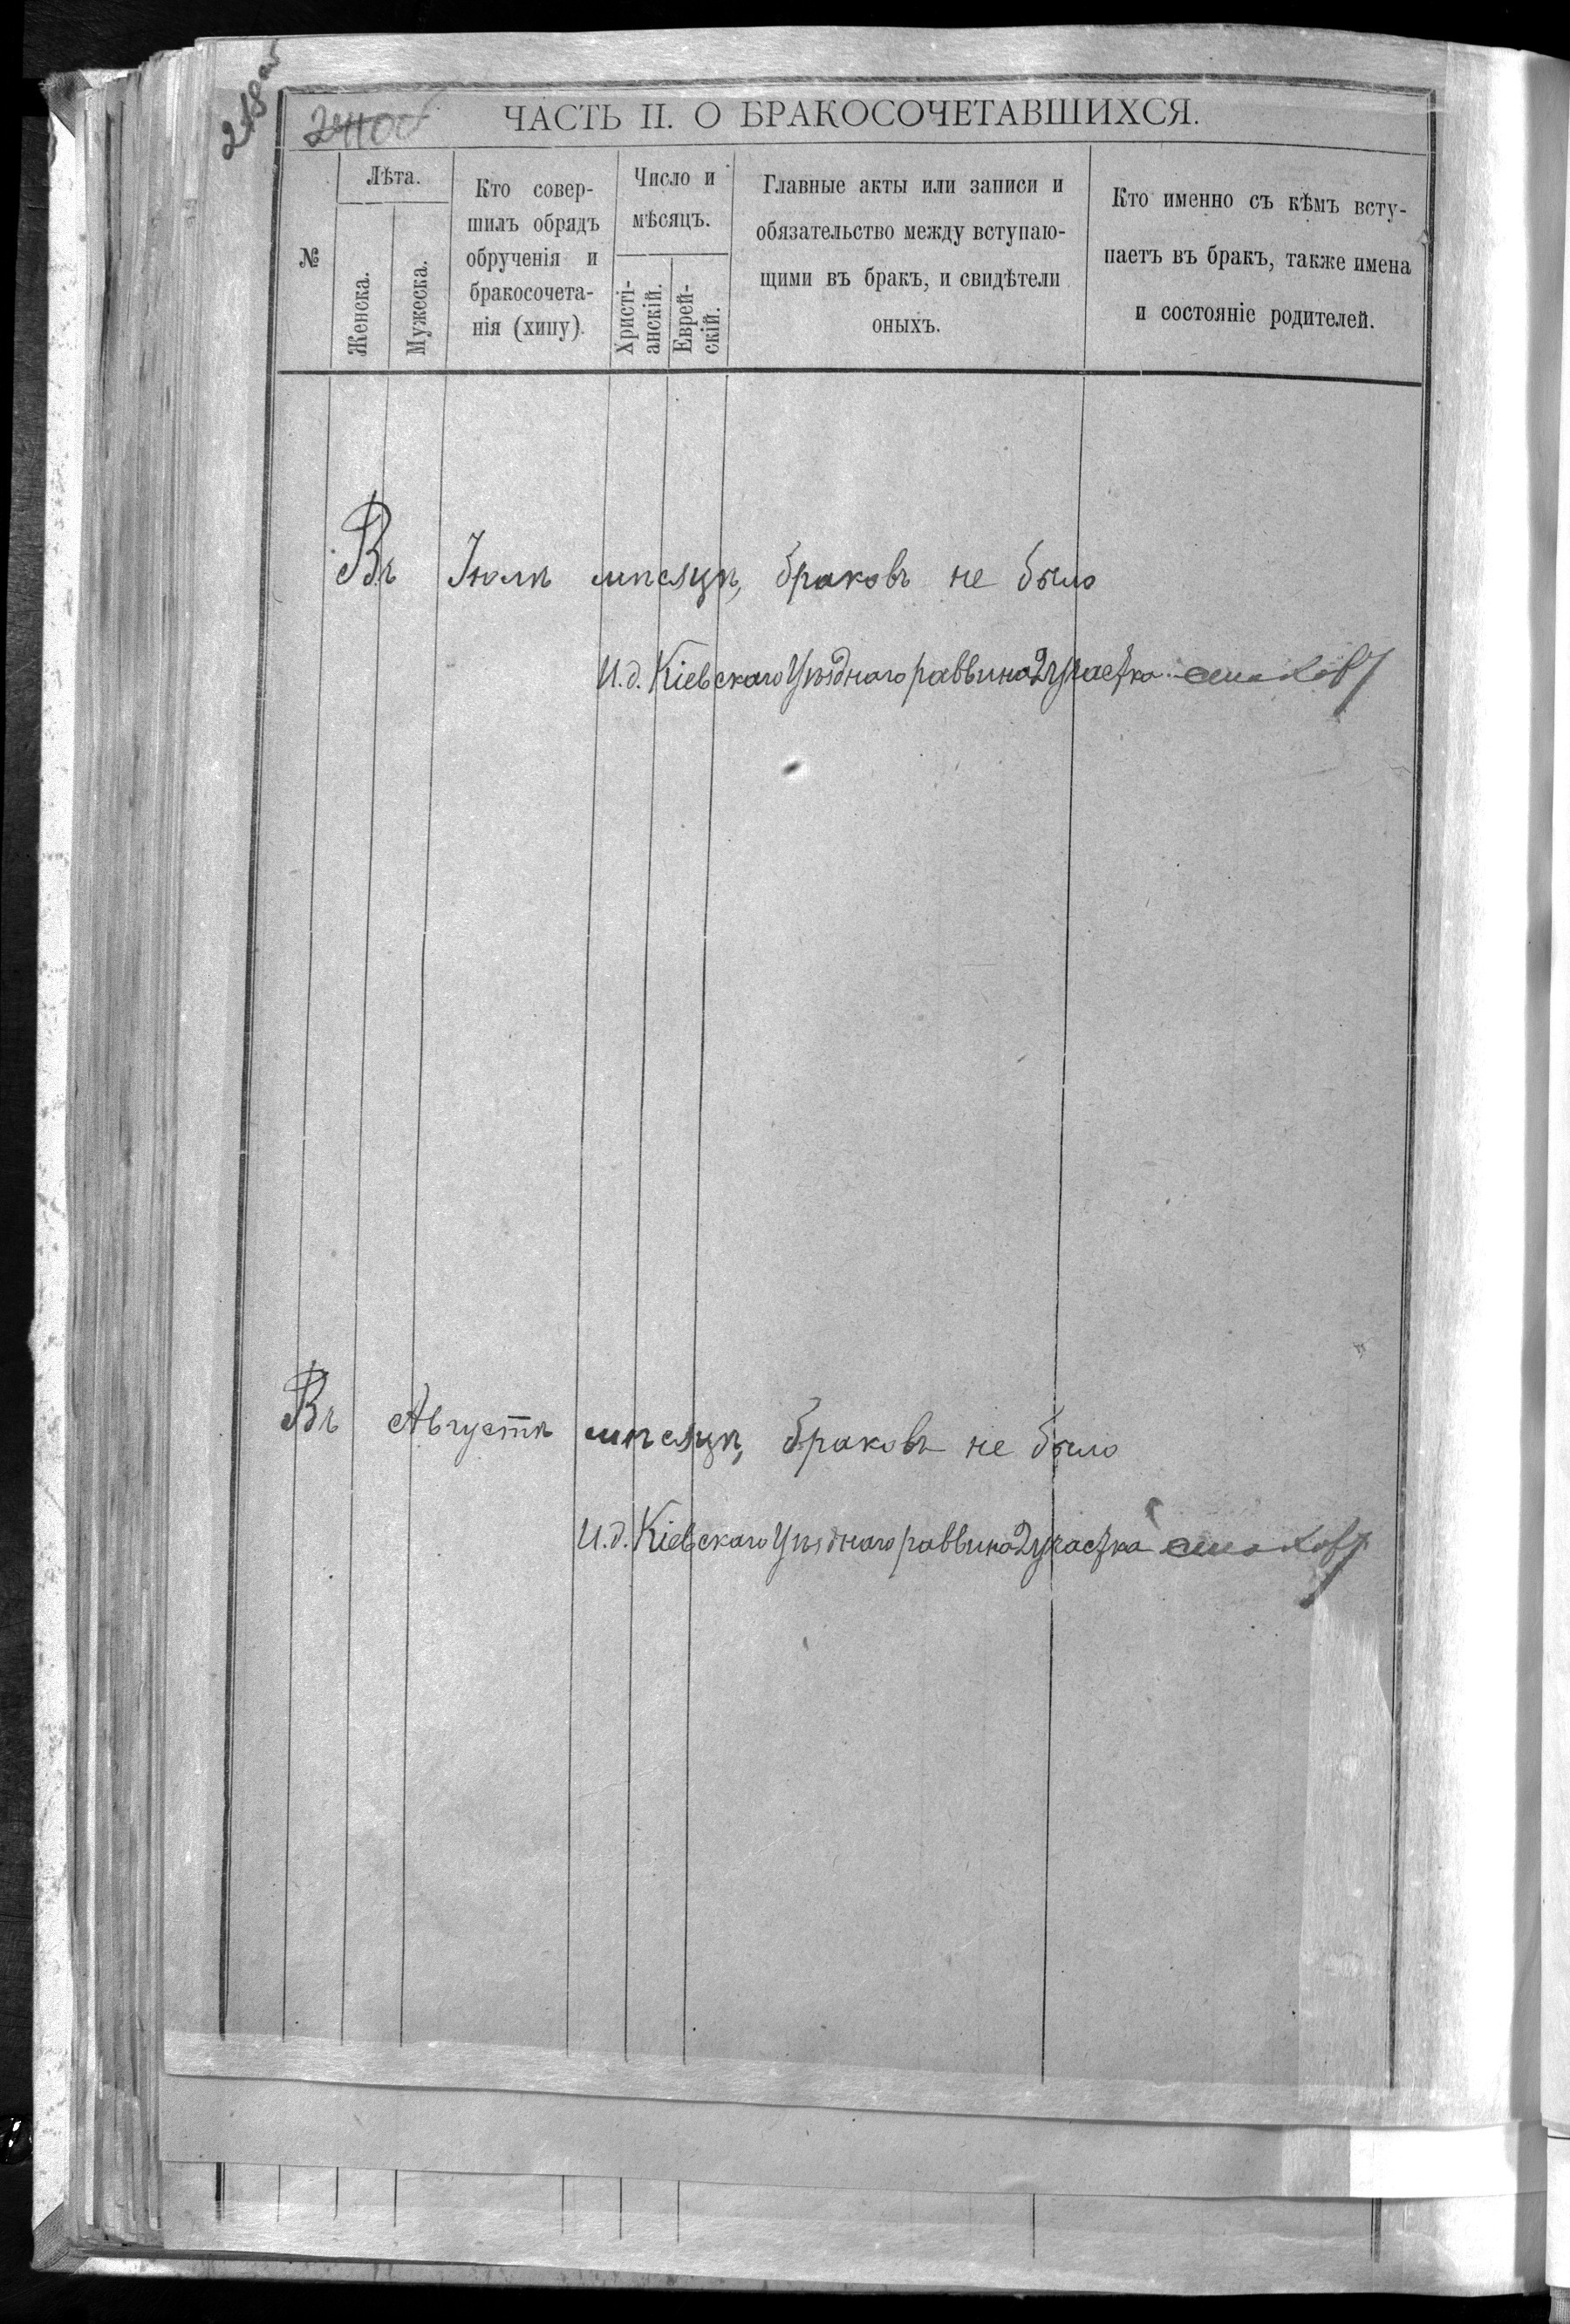 218об
240об
ЧАСТЬ II. О БРАКОСОЧЕТАВШИХСЯ.
№
Лѣта.
Женска.
Мужеска.
Кто совер-
шилъ обрядъ
обрученія и
бракосочета-
нія (хипу).
Число и
мѣсяцъ.
Христі-
анскій.
Еврей-
скій.
Главные акты или записи и
обязательство между вступаю-
щими въ бракъ, и свидѣтели
оныхъ.
Кто именно съ кѣмъ всту-
паетъ въ бракъ, также имена
и состояніе родителей.
Въ Іюлѣ мѣсяцѣ, браковъ не было
И.д. Кіевскаго Уѣзднаго раввина 2 участка
Въ Августѣ мѣсяцѣ, браковъ не было
И.д. Кіевскаго Уѣзднаго раввина 2 участка